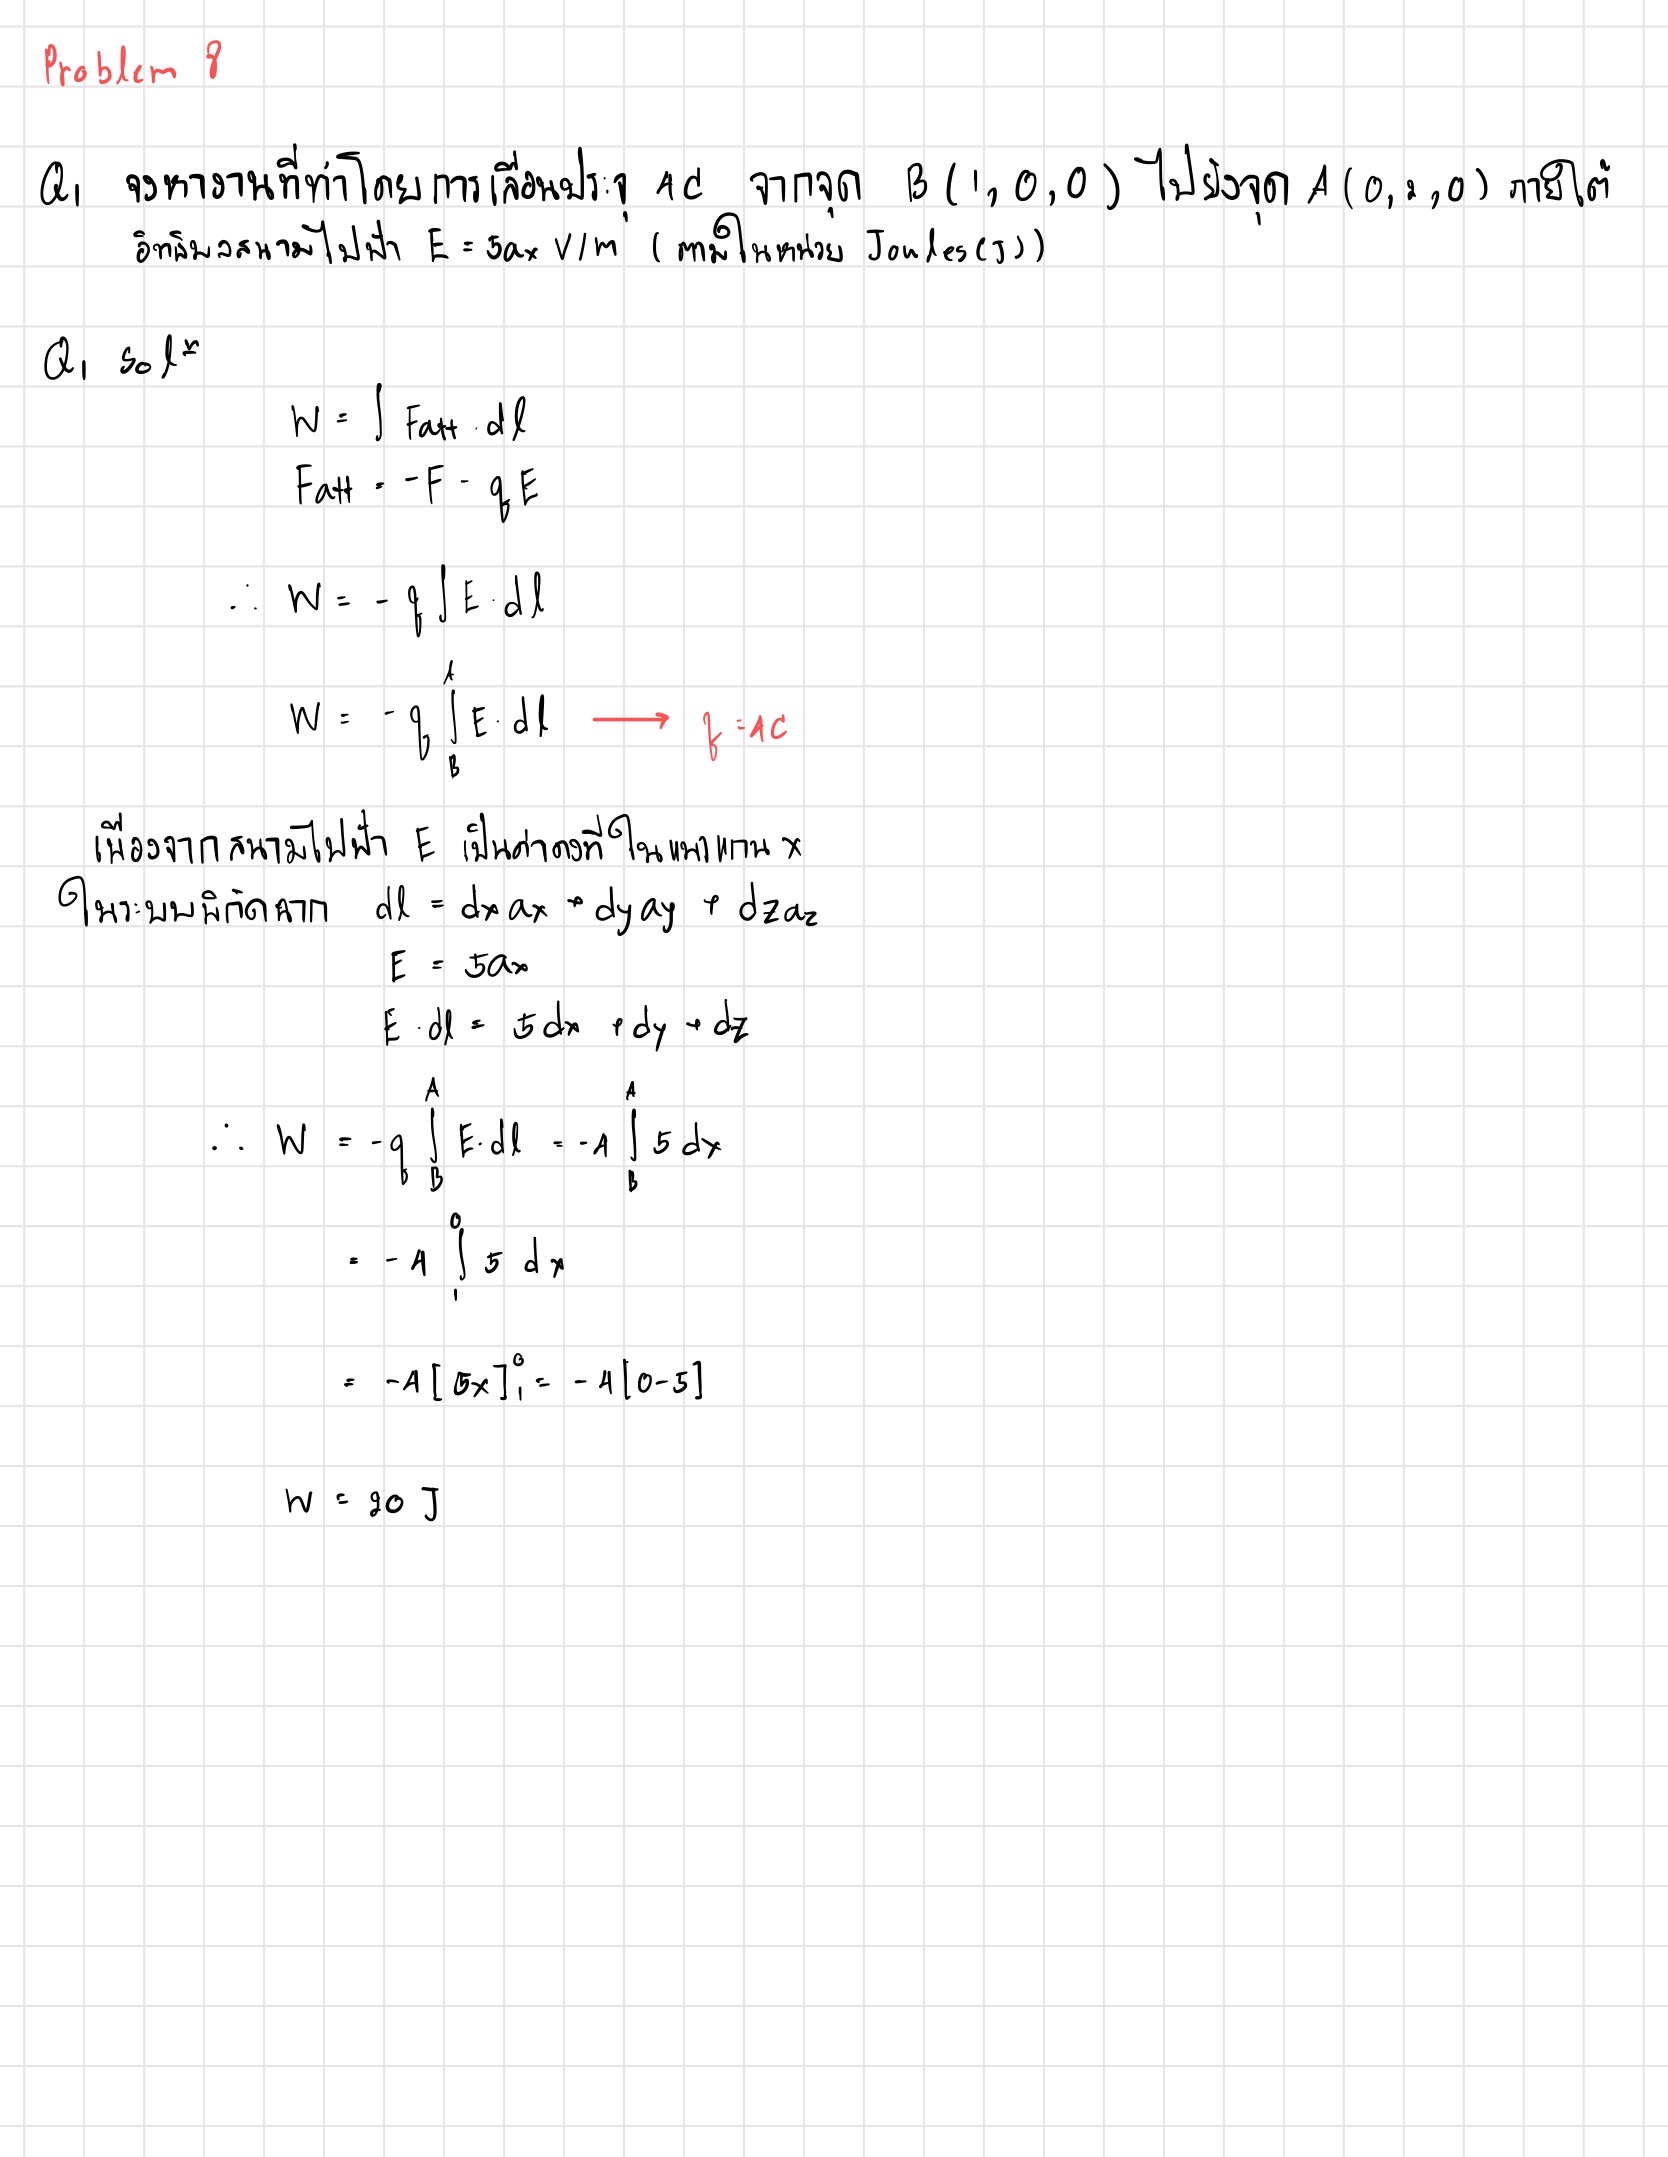 Problem 8
Q1 จงหางานที่ทำโดยการเลื่อนประจุ 4C จากจุด B(1,0,0) ไปยังจุด A(0,2,0) ภายใต้
อิทธิพลสนามไฟฟ้า E = 5ax V/m (ตามในหน่วย Joules(J))
Q1 solⁿ
W = ∫ Fatt · dl
Fatt = -F - qE
∴ W = - q ∫ E · dl
W = - q ∫_B^A E · dl → q = 4C
เนื่องจากสนามไฟฟ้า E เป็นค่าคงที่ในแนวแกน x
ในระบบพิกัดฉาก dl = dx ax + dy ay + dz az
E = 5ax
E · dl = 5dx + dy + dz
∴ W = -q ∫_B^A E · dl = -4 ∫_B^A 5 dx
= -4 ∫_1^0 5 dx
= -4[5x]_1^0 = -4[0-5]
W = 20 J